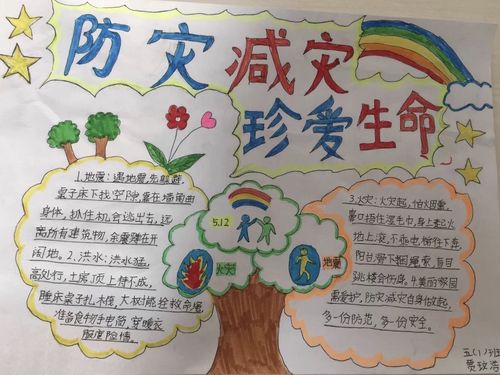 防灾减灾
珍爱生命
1.地震：遇地震,先躲避,
桌子床下找空隙,靠在墙角曲
身体,抓住机会逃出去,远
离所有建筑物,余震蹲在开
阔地。2.洪水:洪水猛,
高处行,土房顶上待不成,
睡床桌子扎木筏,大树能拴救命绳,
准备食物手电筒,穿暖衣
服度险情。
5.12
火灾
地震
3.火灾:火灾起,怕烟熏,
鼻口捂住湿毛巾,身上起火
地上滚,不乘电梯往下奔,
阳台滑下捆绳索,盲目
跳楼会伤身。4.美丽家园
需爱护,防灾减灾自身做起,
多一份防范,多一份安全。
五(1)班
贾玟浩